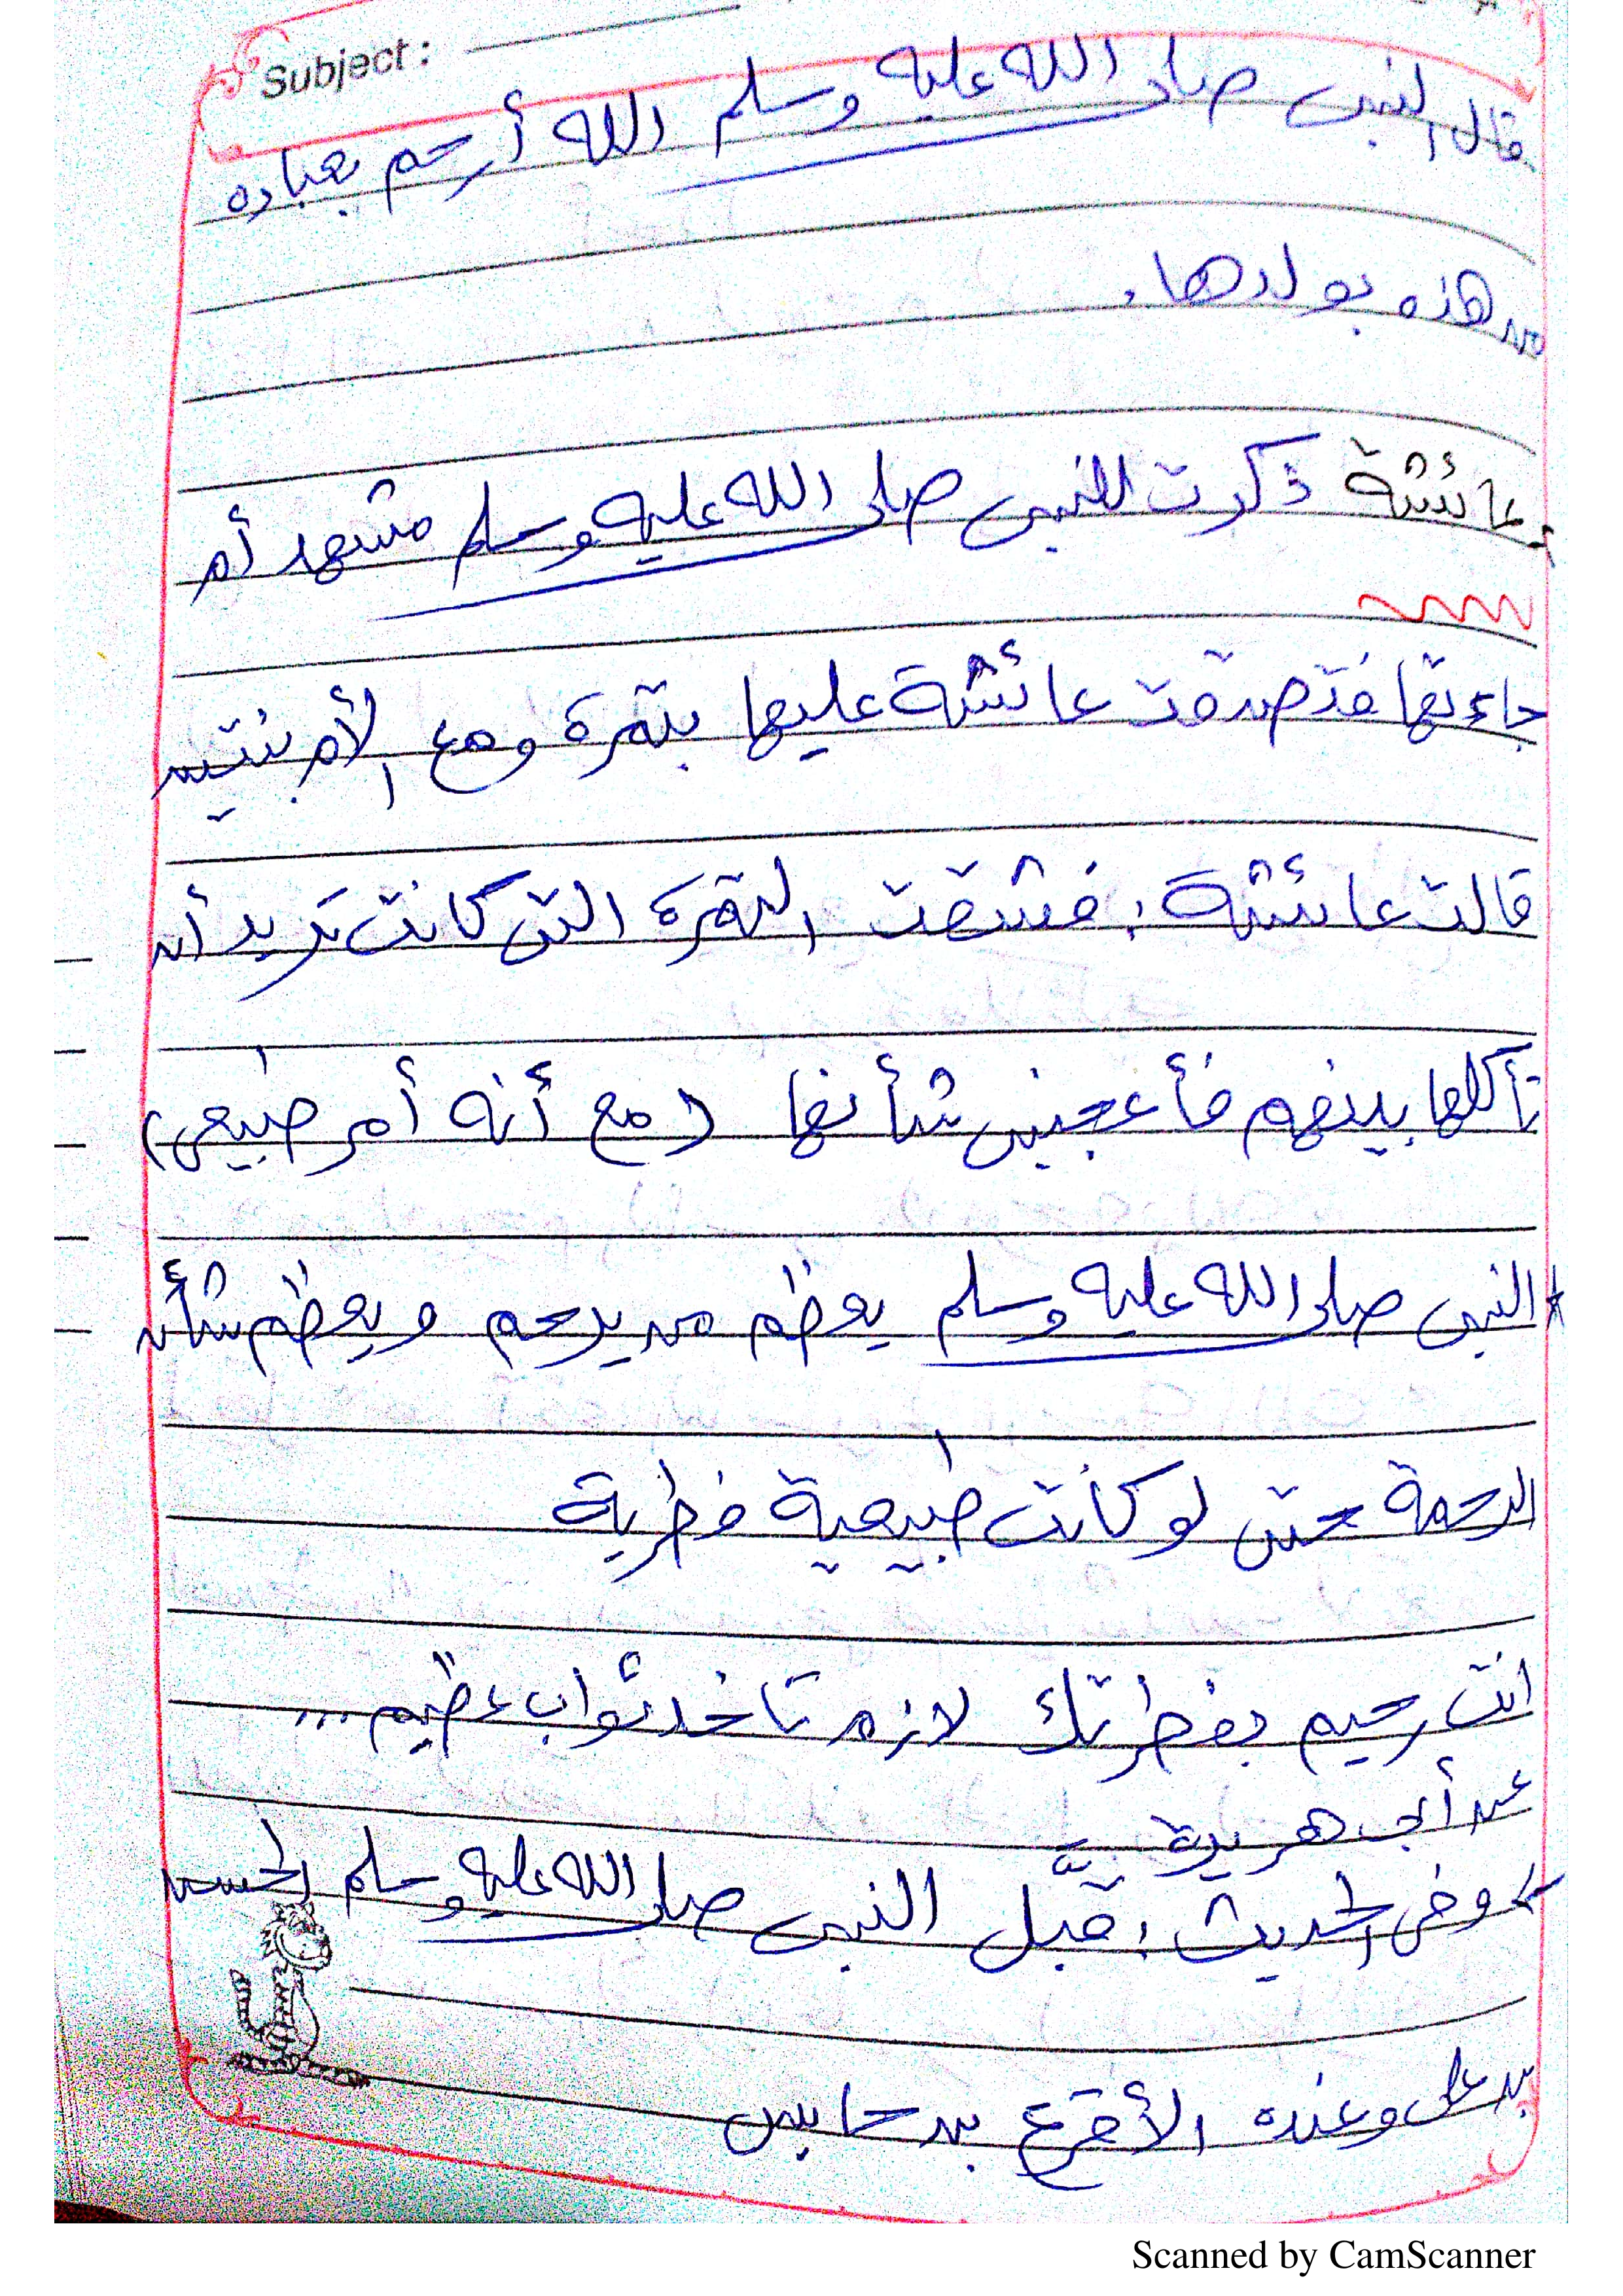 Subject :
قال النبى صلى الله عليه وسلم الله أرحم بعباده
من هذه بولدها.
عائشة ذكرت للنبى صلى الله عليه وسلم مشهد أم
جاءتها فتصدقت عائشة عليها بتمرة ومع الأم بنتين
قالت عائشة : فشقت التمرة التى كانت تريد أن
تأكلها بينهم فأعجبنى شأنها (مع أنه أمر طبيعى)
* النبى صلى الله عليه وسلم يعظم من يرحم ويعظم شأن
الرحمة حتى لو كانت طبيعية فطرية
انت رحيم بفطرتك لازم تاخد ثواب عظيم ...
عن أبى هريرة
وفى الحديث : قبَّل النبى صلى الله عليه وسلم الحسن
بن على وعنده الأقرع بن حابس
Scanned by CamScanner